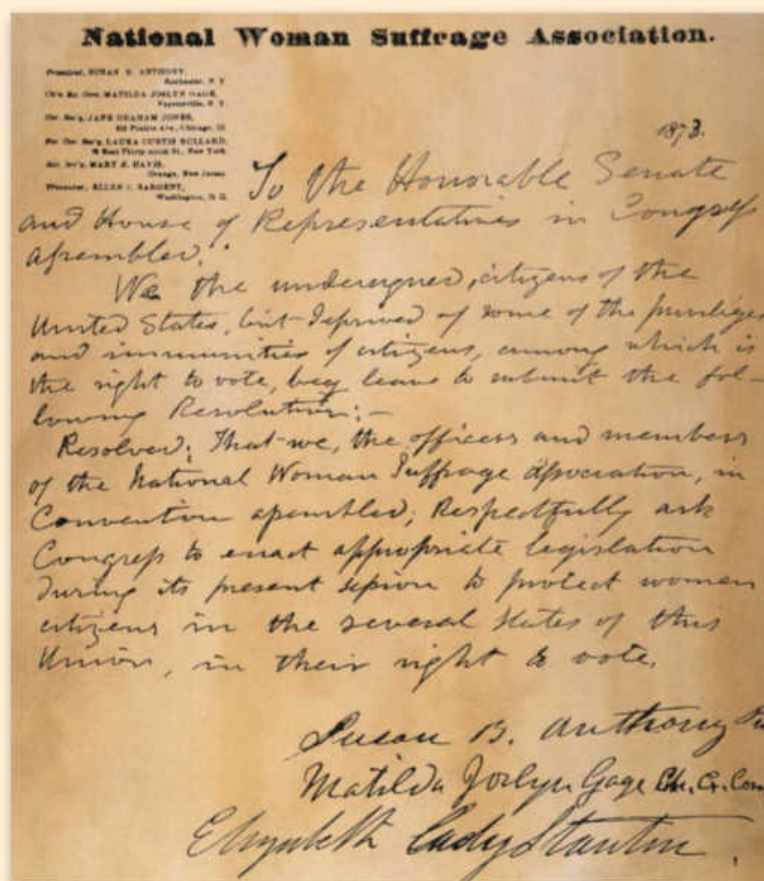 National Woman Suffrage Association.
President, SUSAN B. ANTHONY,
Rochester, N. Y.
Ch'n Ex. Com. MATILDA JOSLYN GAGE,
Fayetteville, N. Y.
Cor. Sec'y, JANE GRAHAM JONES,
Prairie Ave., Chicago, Ill
For. Cor. Sec'y, LAURA CURTIS BULLARD,
East Thirty-ninth St., New York
Rec. Sec'y, MARY F. DAVIS,
Orange, New Jersey
Treasurer, ELLEN C. SARGENT,
Washington, D. C.
1873.
To the Honorable Senate
and House of Representatives in Congress
assembled:
We the undersigned, citizens of the
United States, but deprived of some of the privileges
and immunities of citizens, among which is
the right to vote, beg leave to submit the fol-
lowing Resolution:—
Resolved; That we, the officers and members
of the National Woman Suffrage Association, in
Convention assembled; Respectfully ask
Congress to enact appropriate legislation
during its present session to protect women
citizens in the several States of this
Union, in their right to vote.
Susan B. Anthony
Matilda Joslyn Gage Ch. Ex. Com
Elizabeth Cady Stanton.